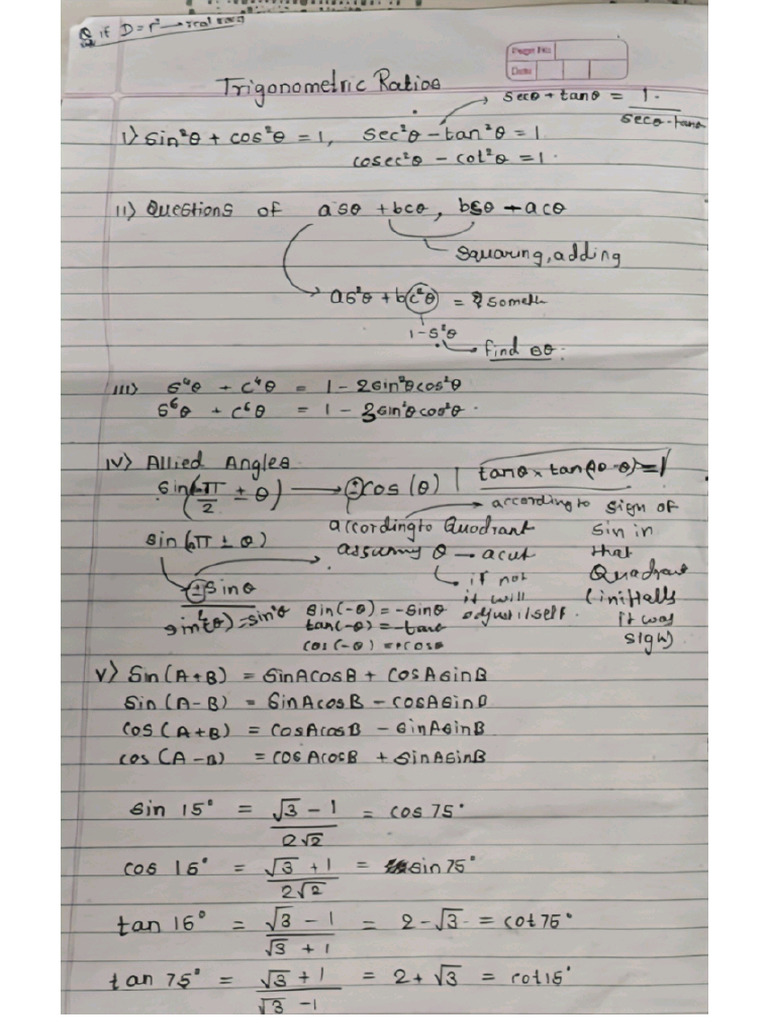 Q if D = r² → real
Page No.
Date
Trigonometric Ratios
secθ + tanθ = 1 / secθ - tanθ
I) sin²θ + cos²θ = 1, sec²θ - tan²θ = 1
cosec²θ - cot²θ = 1.
II) Questions of asθ + bcθ, bsθ - acθ
squaring, adding
as²θ + bc²θ =
1 - s²θ
find θ.
III) s⁴θ + c⁴θ = 1 - 2sin²θcos²θ
s⁶θ + c⁶θ = 1 - 3sin²θcos²θ.
IV) Allied Angles
tanθ × tan(90-θ) = 1
sin(nπ/2 ± θ) → ± cos(θ)
according to sign of
sin in
that
Quadrant
(initially
it was
sign)
according to Quadrant
assuming θ → acut
if not
it will
adjust itself.
sin(nπ ± θ)
± sinθ
sin(-θ) = -sinθ
tan(-θ) = -tanθ
cos(-θ) = +cosθ
V) Sin(A+B) = SinAcosB + CosAsinB
Sin(A-B) = SinAcosB - cosAsinB
Cos(A+B) = CosAcosB - sinAsinB
cos(A-B) = cosAcosB + sinAsinB
sin 15° = √3 - 1 / 2√2 = cos 75°
cos 15° = √3 + 1 / 2√2 = sin 75°
tan 15° = √3 - 1 / √3 + 1 = 2 - √3 = cot 75°
tan 75° = √3 + 1 / √3 - 1 = 2 + √3 = cot 15°